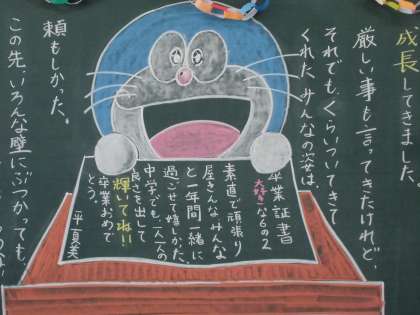 成長してきました。
厳しい事も言ってきたけれど、
それでもくらいついてきて
くれたみんなの姿は、
頼もしかった。
この先、いろんな壁にぶつかっても、
卒業証書
大好きな6の2
素直で頑張り
屋さんなみんな
と一年間一緒に
過ごせて嬉しかった。
中学でも一人一人の
良さを出して
輝いてね!!
卒業おめで
とう。
平 夏美